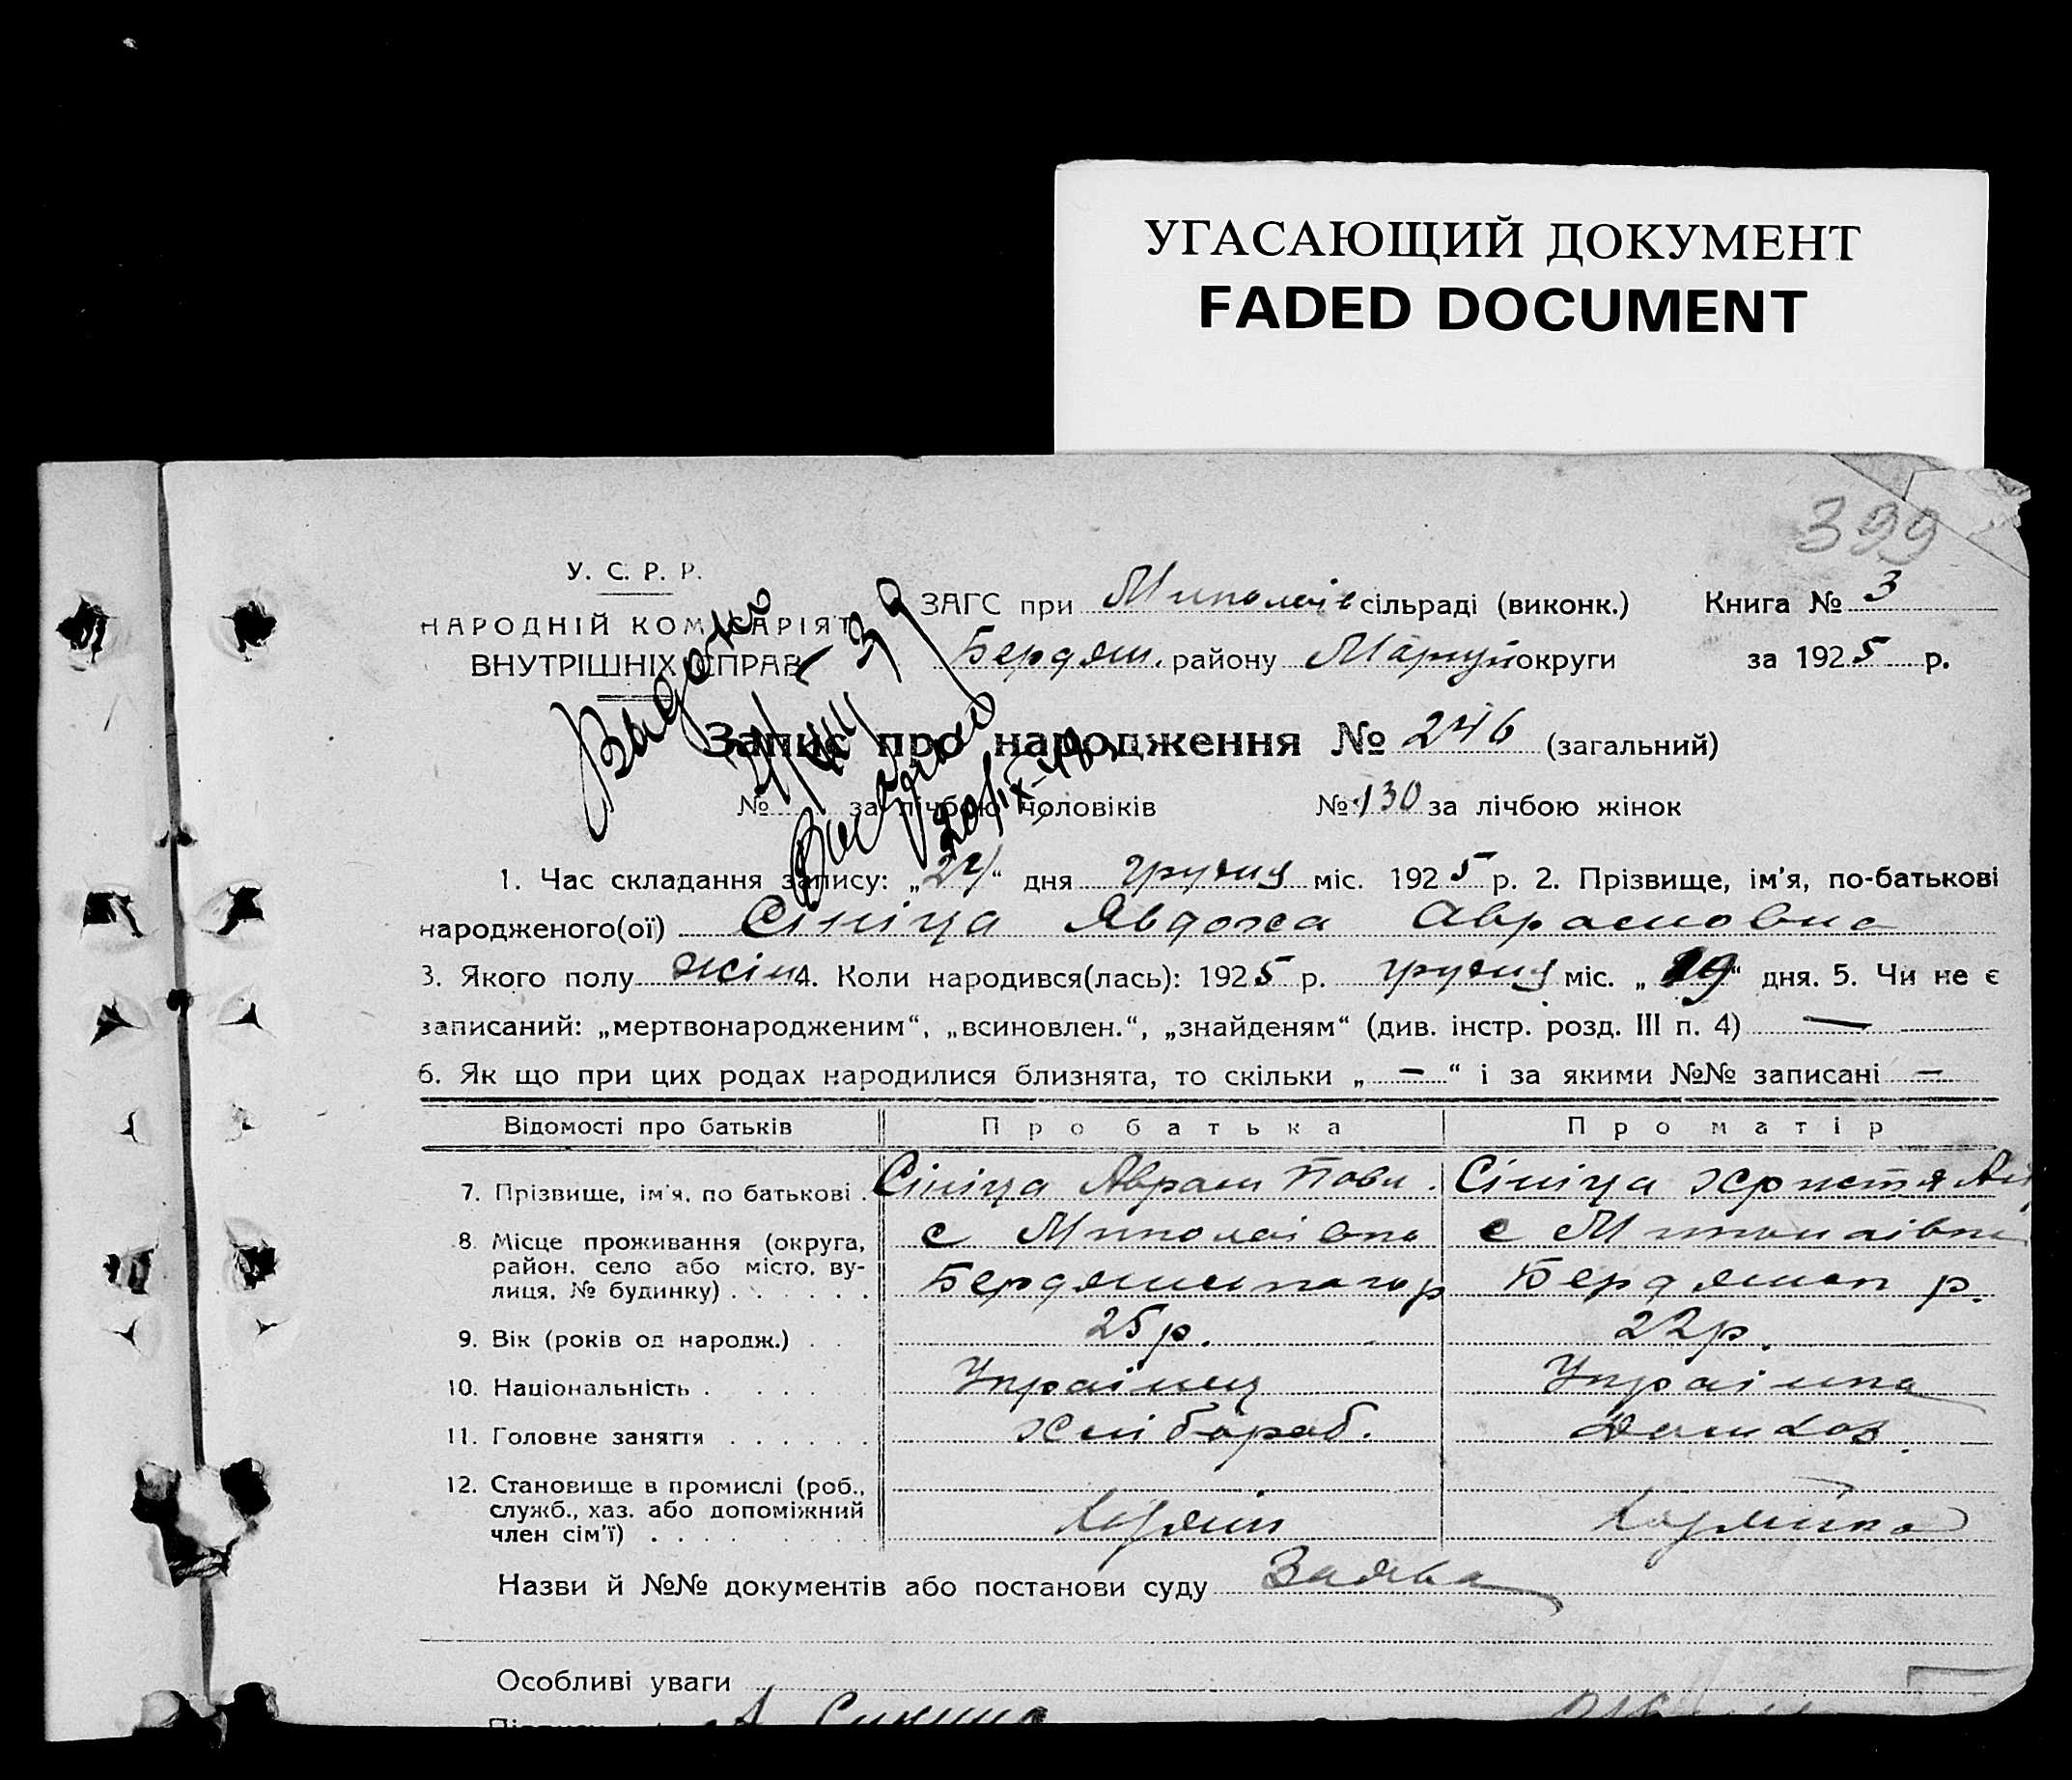 УГАСАЮЩИЙ ДОКУМЕНТ
FADED DOCUMENT
399
У. С. Р. Р.
НАРОДНІЙ КОМІСАРІЯТ
ВНУТРІШНІХ СПРАВ
ЗАГС при Миколаїв сільраді (виконк.)
Книга № 3
Бердян. району Маріуп округи
за 1925 р.
Видано
39
Видано
20/IX-48
Запис про народження № 246 (загальний)
№ за лічбою чоловіків
№ 130 за лічбою жінок
1. Час складання запису: „24“ дня грудня міс. 1925 р. 2. Прізвище, ім'я, по-батькові
народженого(ої) Сініца Явдоха Аврамовна
3. Якого полу жін 4. Коли народився(лась): 1925 р. грудня міс. „19“ дня. 5. Чи не є
записаний: „мертвонародженим“, „всиновлен.“, „знайденям“ (див. інстр. розд. III п. 4) —
6. Як що при цих родах народилися близнята, то скільки „—“ і за якими №№ записані —
Відомості про батьків
Про батька
Про матір
7. Прізвище, ім'я, по батькові
Сініца Аврам Павл.
Сініца Христя
8. Місце проживання (округа, район, село або місто, вулиця, № будинку)
с Миколаівка
Бердянського р
с Миколаівка
Бердянск р.
9. Вік (років од народж.)
25 р.
22 р.
10. Національність
Украінец
Украінка
11. Головне заняття
Хлібороб.
Домхоз.
12. Становище в промислі (роб., служб., хаз. або допоміжний член сім'ї)
Хазяін
Хазяйка
Назви й №№ документів або постанови суду Заява
Особливі уваги
А Синица